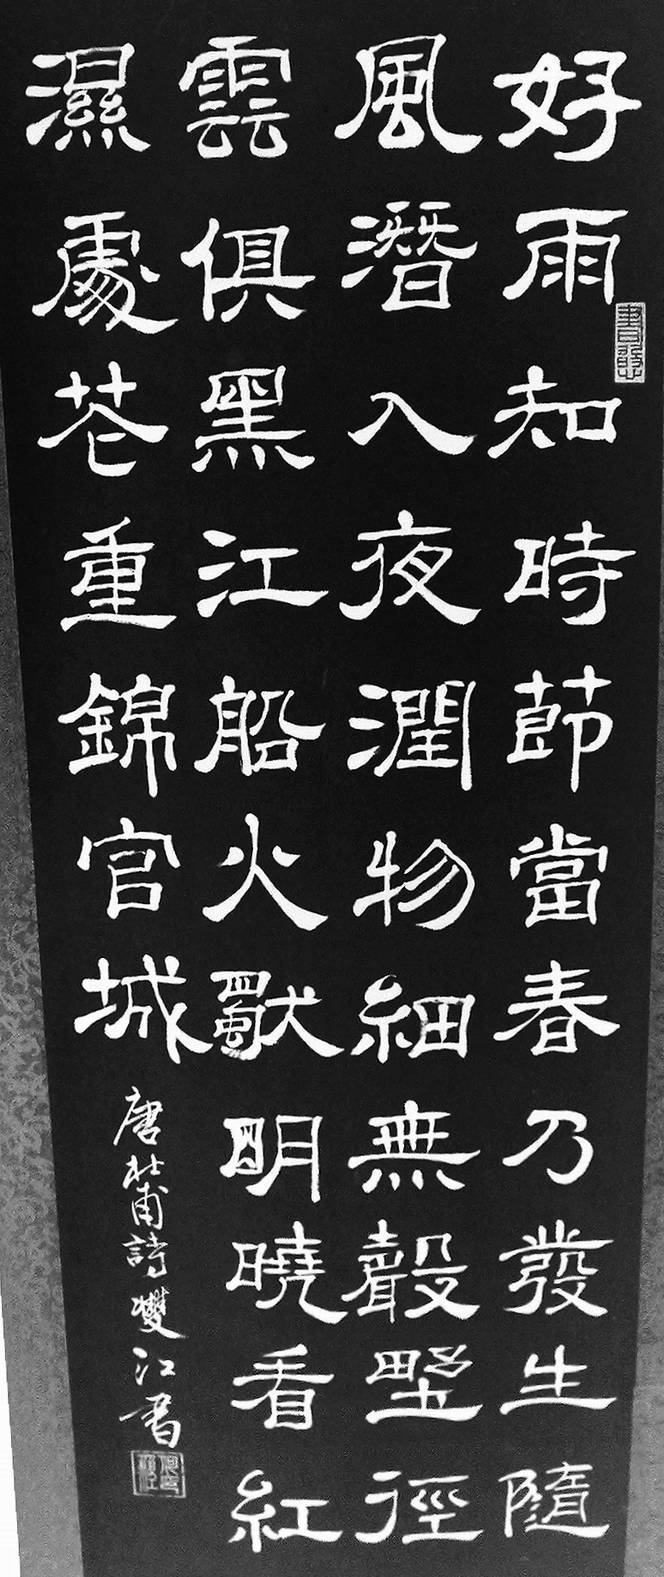 好雨知時節當春乃發生隨
風潛入夜潤物細無聲野徑
雲俱黑江船火獨明曉看紅
濕處花重錦官城
唐杜甫詩雙江書